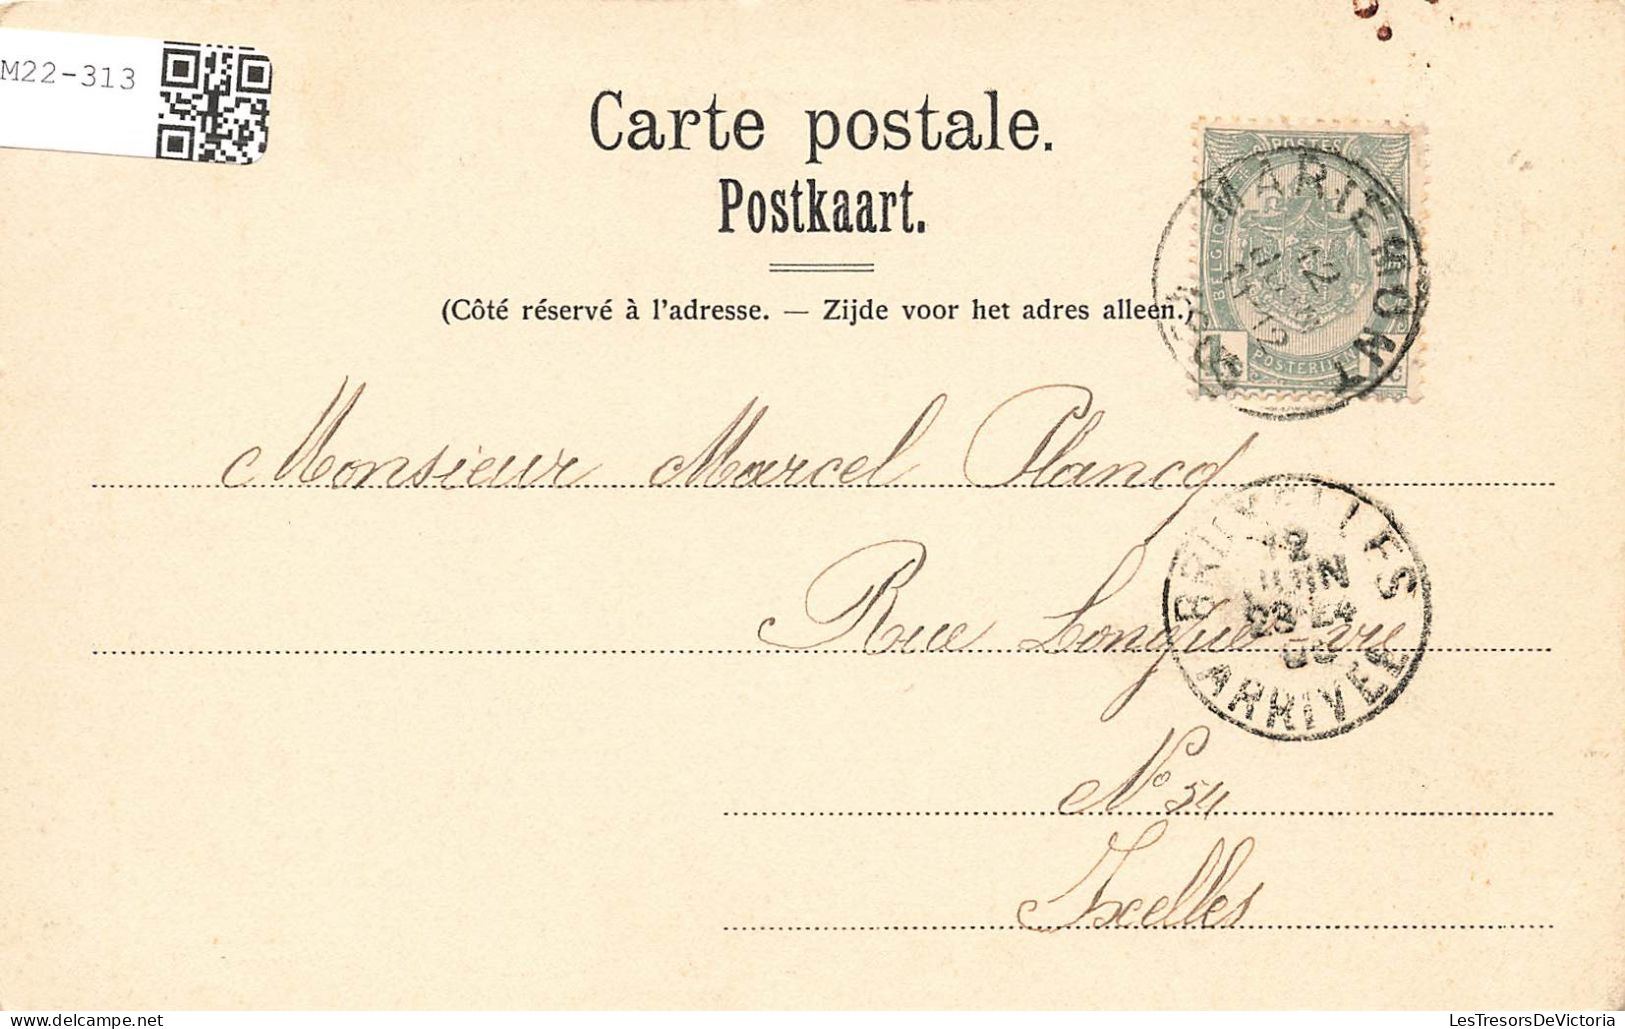 M22-313
Carte postale.
Postkaart.
(Côté réservé à l'adresse. — Zijde voor het adres alleen.)
POSTES
BELGIQUE
POSTERIJEN
MARIEMONT
12
Monsieur Marcel Plancq
BRUXELLES
12
JUIN
ARRIVÉE
Rue Longue-vie
N° 54
Ixelles
LesTresorsDeVictoria